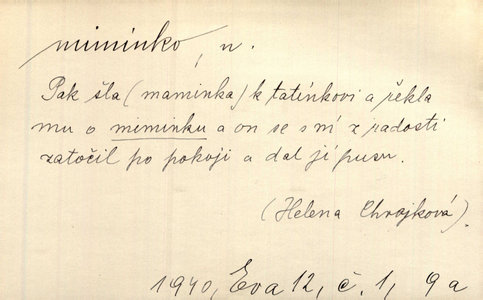 miminko, n.
Pak šla (maminka) k tatínkovi a řekla
mu o miminku a on se s ní z radosti
zatočil po pokoji a dal jí pusu.
(Helena Chrojková).
1940, Eva 12, č. 1, 9a